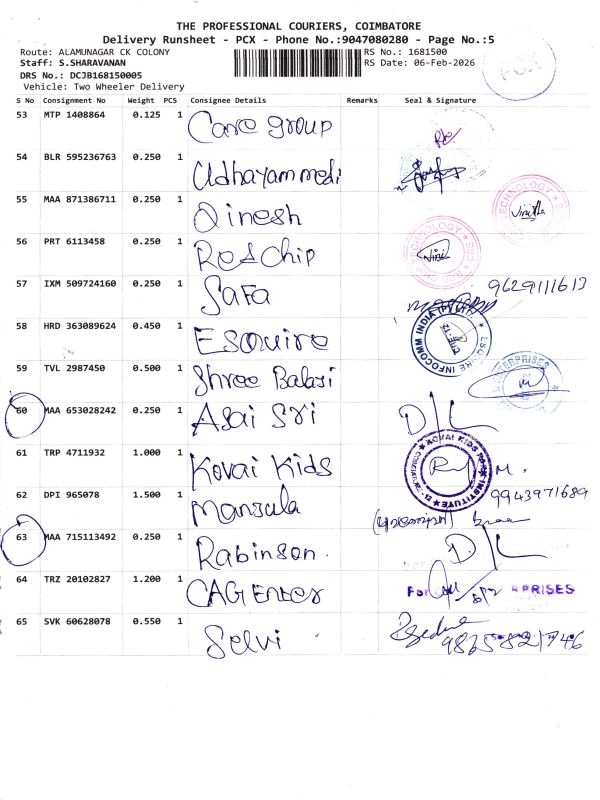 THE PROFESSIONAL COURIERS, COIMBATORE
Delivery Runsheet - PCX - Phone No.:9047080280 - Page No.:5
Route: ALAMUNAGAR CK COLONY
RS No.: 1681500
Staff: S.SHARAVANAN
RS Date: 06-Feb-2026
DRS No.: DCJB168150005
Vehicle: Two Wheeler Delivery
PCX
S No Consignment No Weight PCS Consignee Details Remarks Seal & Signature
53 MTP 1408864 0.125 1 Care group
54 BLR 595236763 0.250 1 Udhayam medi
55 MAA 871386711 0.250 1 Dinesh
56 PRT 6113458 0.250 1 Redchip
57 IXM 509724160 0.250 1 Safa 9629111613
58 HRD 363089624 0.450 1 Esquire
ESQUIRE INFOCOMM INDIA (P) LTD
59 TVL 2987450 0.500 1 Shree Balaji
ENTERPRISES
60 MAA 653028842 0.250 1 Asai Sri D/L
61 TRP 4711932 1.000 1 Kovai Kids
KOVAI KIDS INSTITUTE
62 DPI 965078 1.500 1 Manjula 9943971689
63 MAA 715113492 0.250 1 Rabinson. D/L
64 TRZ 20102827 1.200 1 CAG Enter
For PRISES
65 SVK 60628078 0.550 1 Selvi